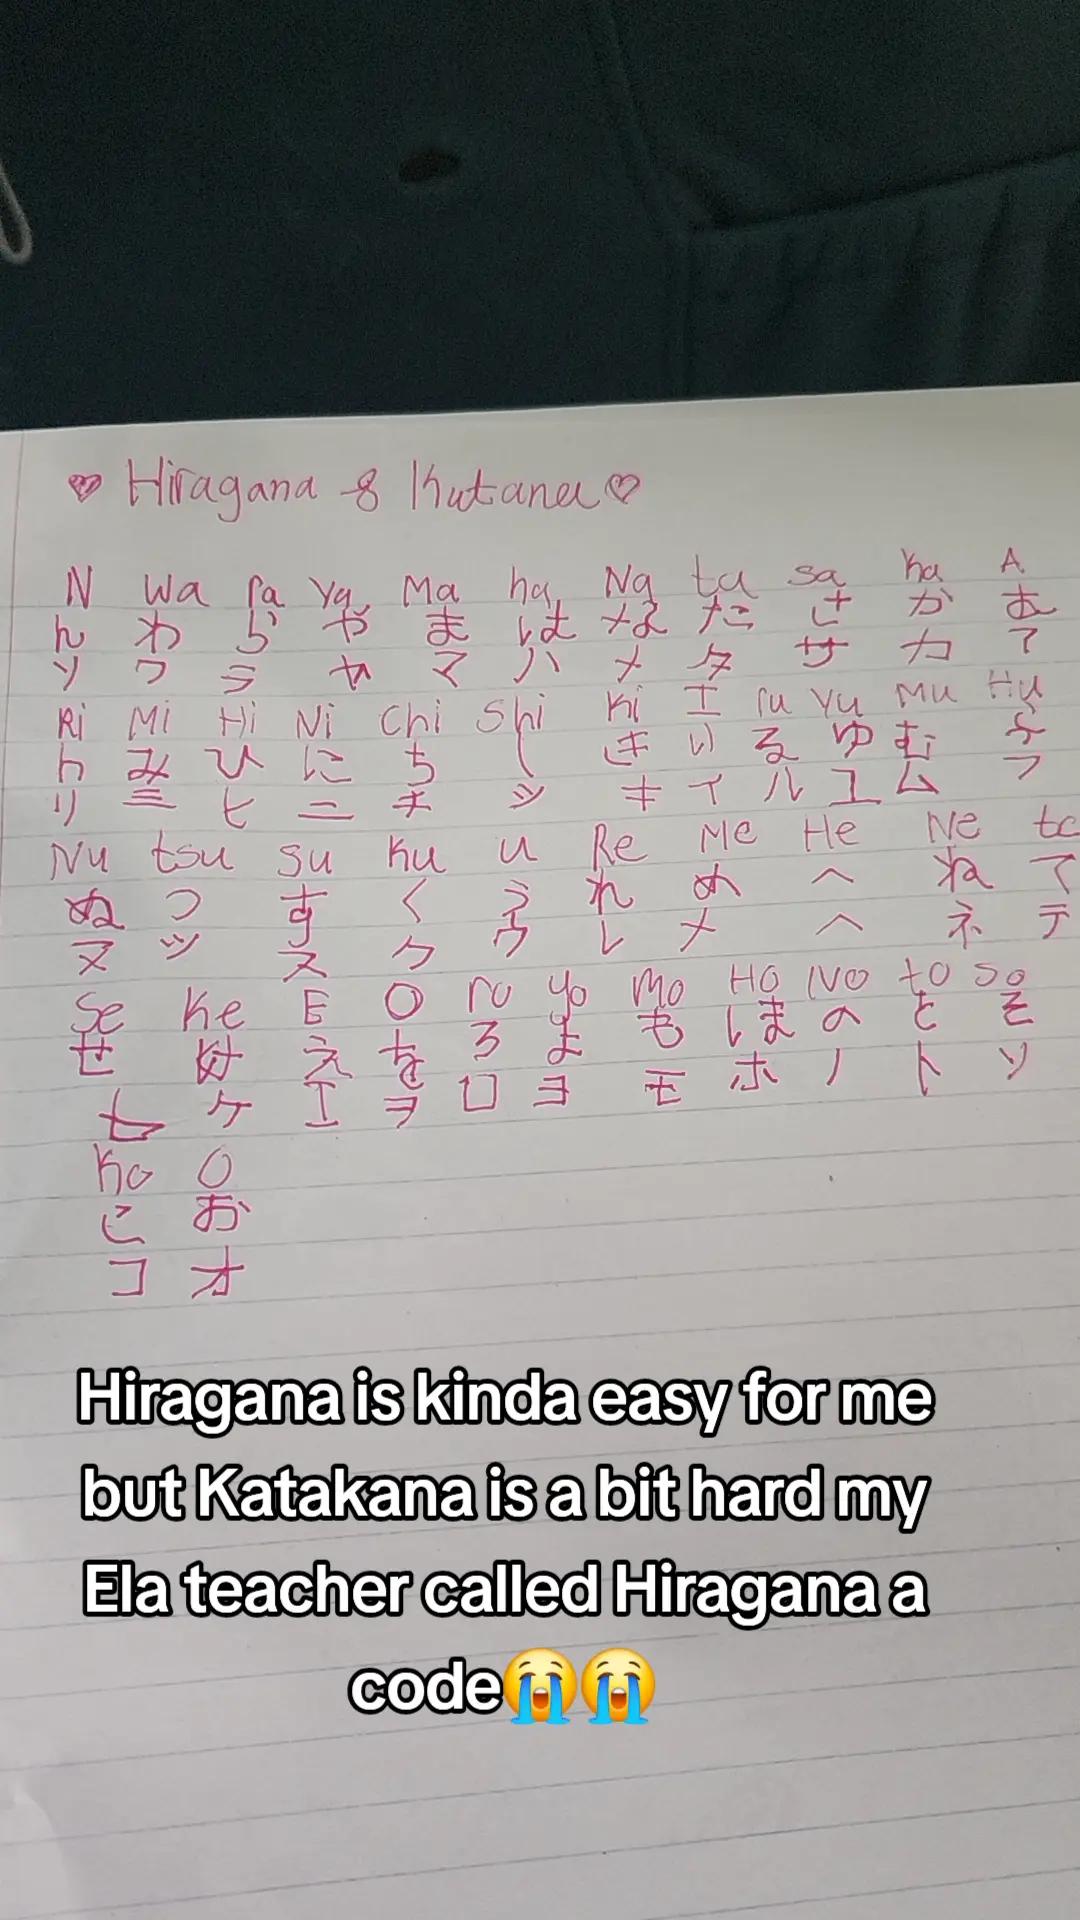 Hiragana & Kutana
N Wa ra Ya Ma ha Na ta sa ka A
ん わ ら や ま は な た さ か あ
ソ ワ ラ ヤ マ ハ メ タ サ カ ア
Ri Mi Hi Ni Chi Shi Ki I ru Yu Mu Hu
り み ひ に ち し き い る ゆ む ふ
リ ミ ヒ ニ チ ツ キ イ ル ユ ム フ
Nu tsu su Ku u Re Me He Ne
ぬ つ す く う れ め へ ね て
ヌ ツ ス ク ウ レ メ ヘ ネ テ
Se Ke E O ro Yo Mo HO NO to so
せ け え を ろ よ も ほ の と そ
セ ケ エ ヲ ロ ヨ モ ホ ノ ト ソ
Ko O
こ お
コ オ
Hiragana is kinda easy for me
but Katakana is a bit hard my
Ela teacher called Hiragana a
code😭😭